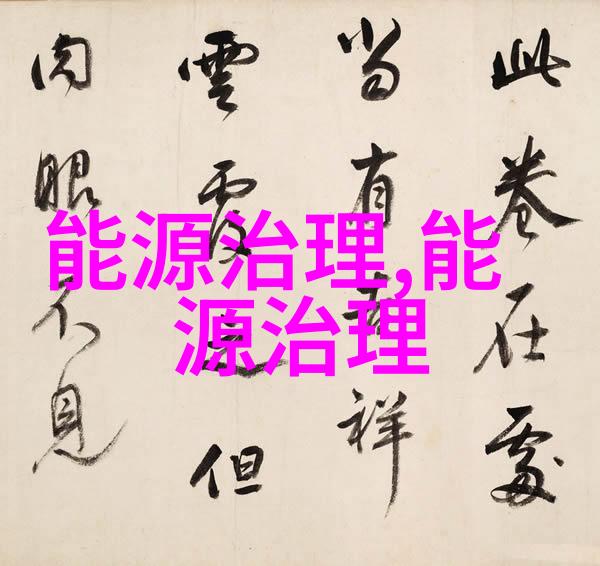 此卷在處
当有祥
雲覆但
肉眼不見
能源治理,能
源治理